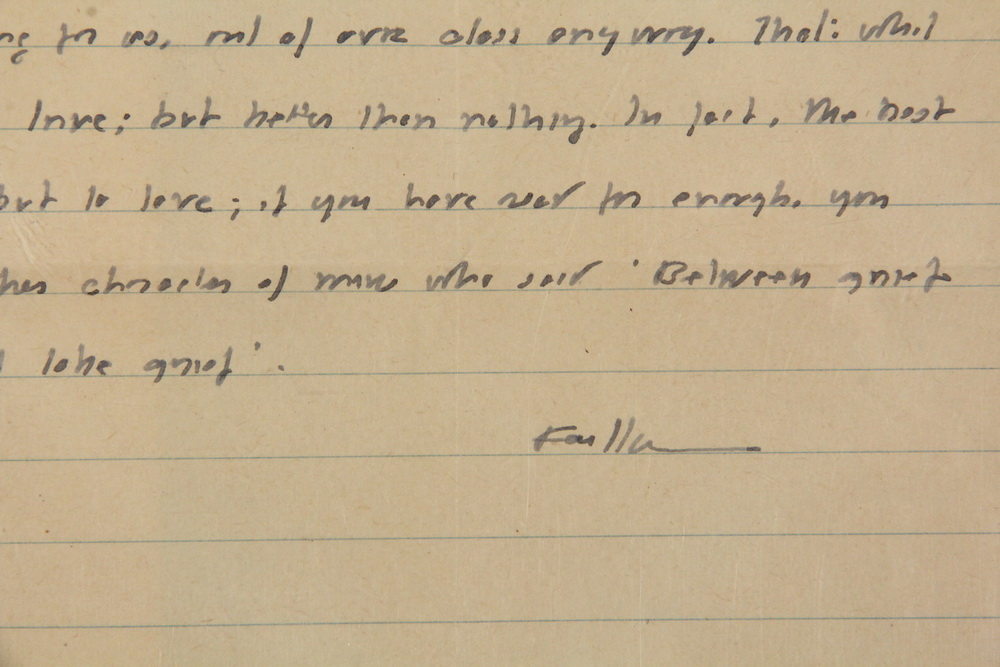 for us, not of our class anyway. That: what
love; but better than nothing. In fact, the best
but to love; if you have not for enough. you
character of mine who said 'Between grief
take grief'.
Faulkner